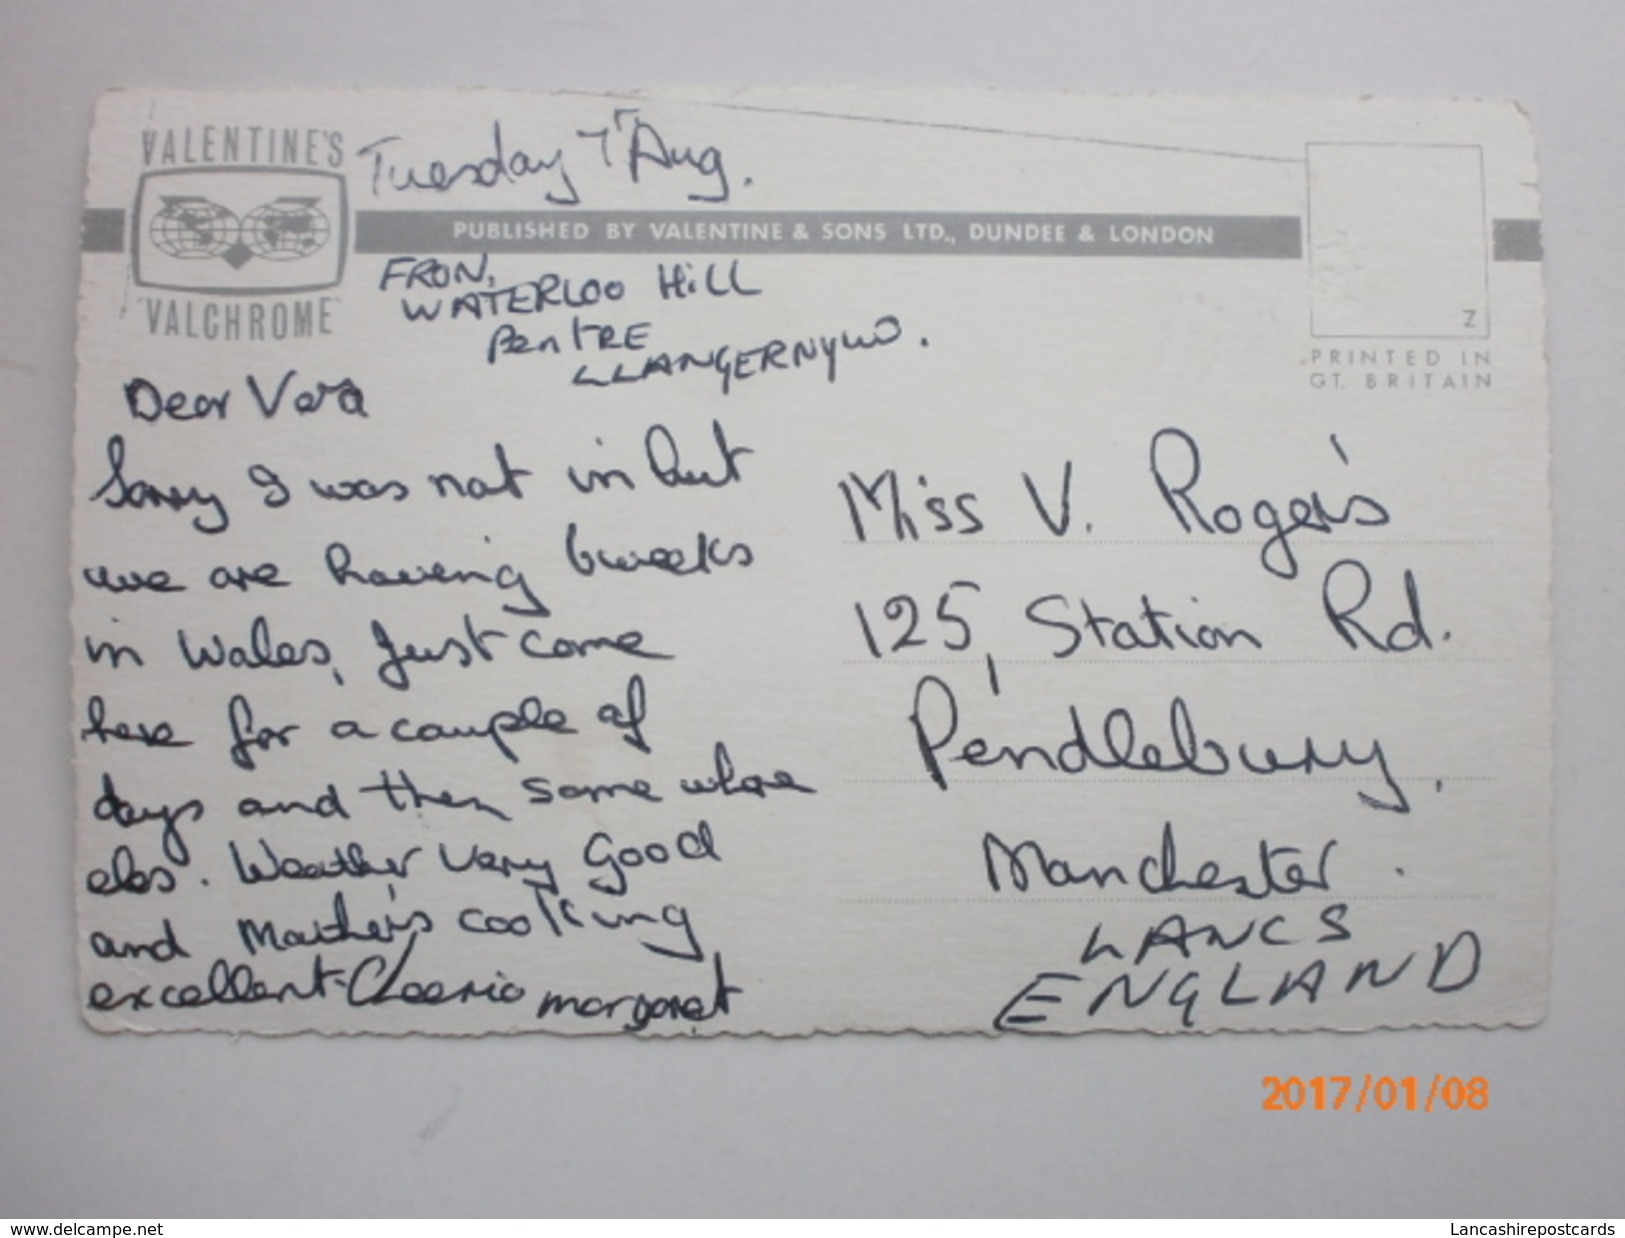 VALENTINE'S
"VALCHROME"
Tuesday 7T Aug.
PUBLISHED BY VALENTINE & SONS LTD., DUNDEE & LONDON
FRON,
WATERLOO HILL
PENTRE
LLANGERNYW.
Z
PRINTED IN
GT. BRITAIN
Dear Vera
Sorry I was not in but
we are having 6 weeks
in Wales, Just come
here for a couple of
days and then some where
eles. Weather very good
and Mother's cooking
excellent-Cheerio margaret
Miss V. Roger's
125, Station Rd.
Pendlebury,
Manchester.
LANCS
ENGLAND
2017/01/08
www.delcampe.net
Lancashirepostcards